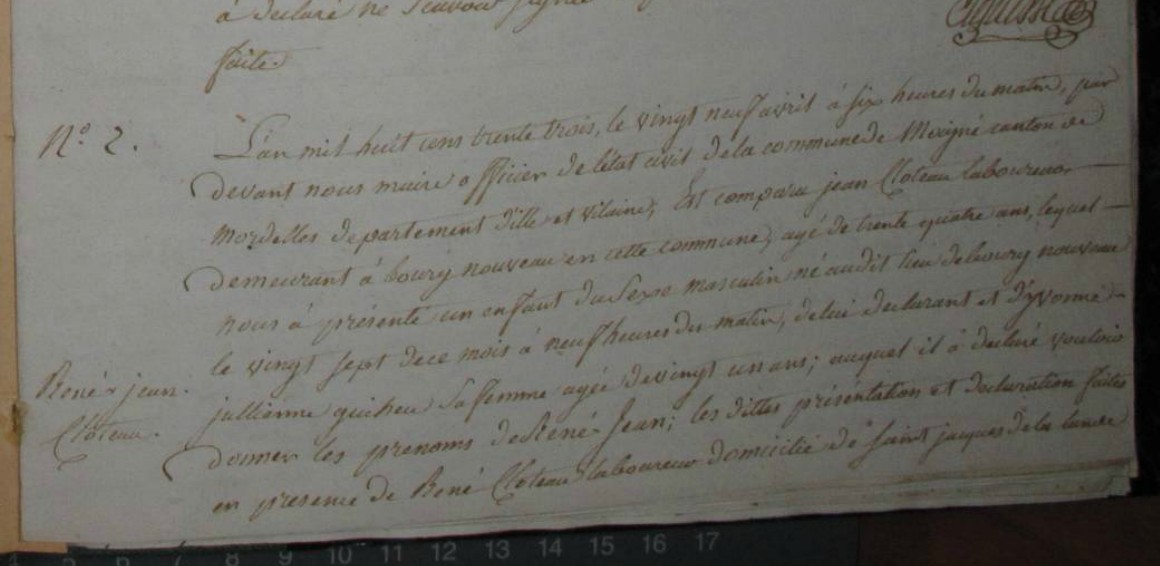 à déclaré ne Scavoir signer
faite.
N.° 2.
L'an mil huit cens trente trois, le vingt neuf avril à six heures du matin, par
devant nous maire officier de létat civil de la commune de Moigné canton de
Mordelles departement d'ille et vilaine, Est comparu jean Cloteau laboureur,
demeurant à bourg nouveau en cette commune, agé de trente quatre ans, lequel
nous à présenté un enfant du Sexe masculin né audit lieu de bourg nouveau
le vingt sept de ce mois à neuf heures du matin, de lui declarant et d'yvonne
jullienne guiheu Sa femme agée de vingt un ans; auquel il à declaré vouloir
donner les prenoms de René Jean; les dittes présentation et declaration faites
en presence de René Cloteau laboureur domicilié de Saint jacques de la lande
René jean
Cloteau.
5 6 7 8 9 10 11 12 13 14 15 16 17